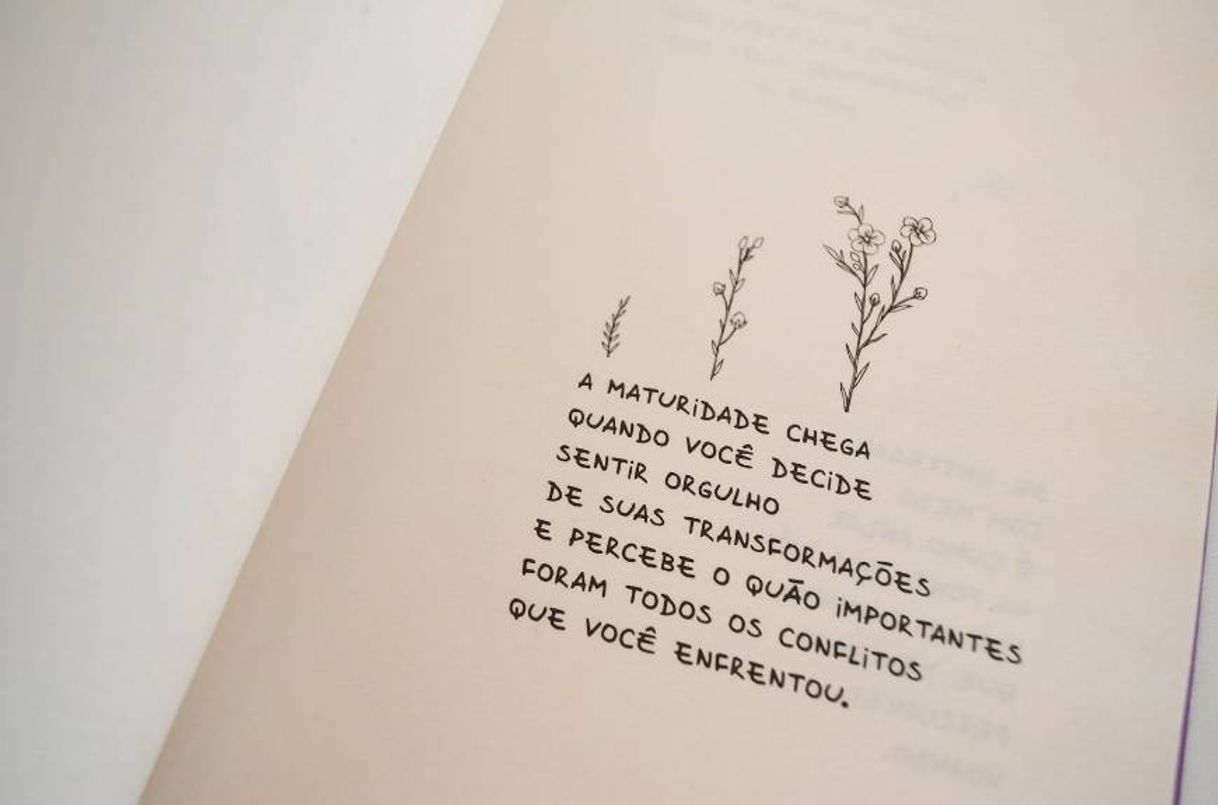 A MATURIDADE CHEGA
QUANDO VOCÊ DECIDE
SENTIR ORGULHO
DE SUAS TRANSFORMAÇÕES
E PERCEBE O QUÃO IMPORTANTES
FORAM TODOS OS CONFLITOS
QUE VOCÊ ENFRENTOU.